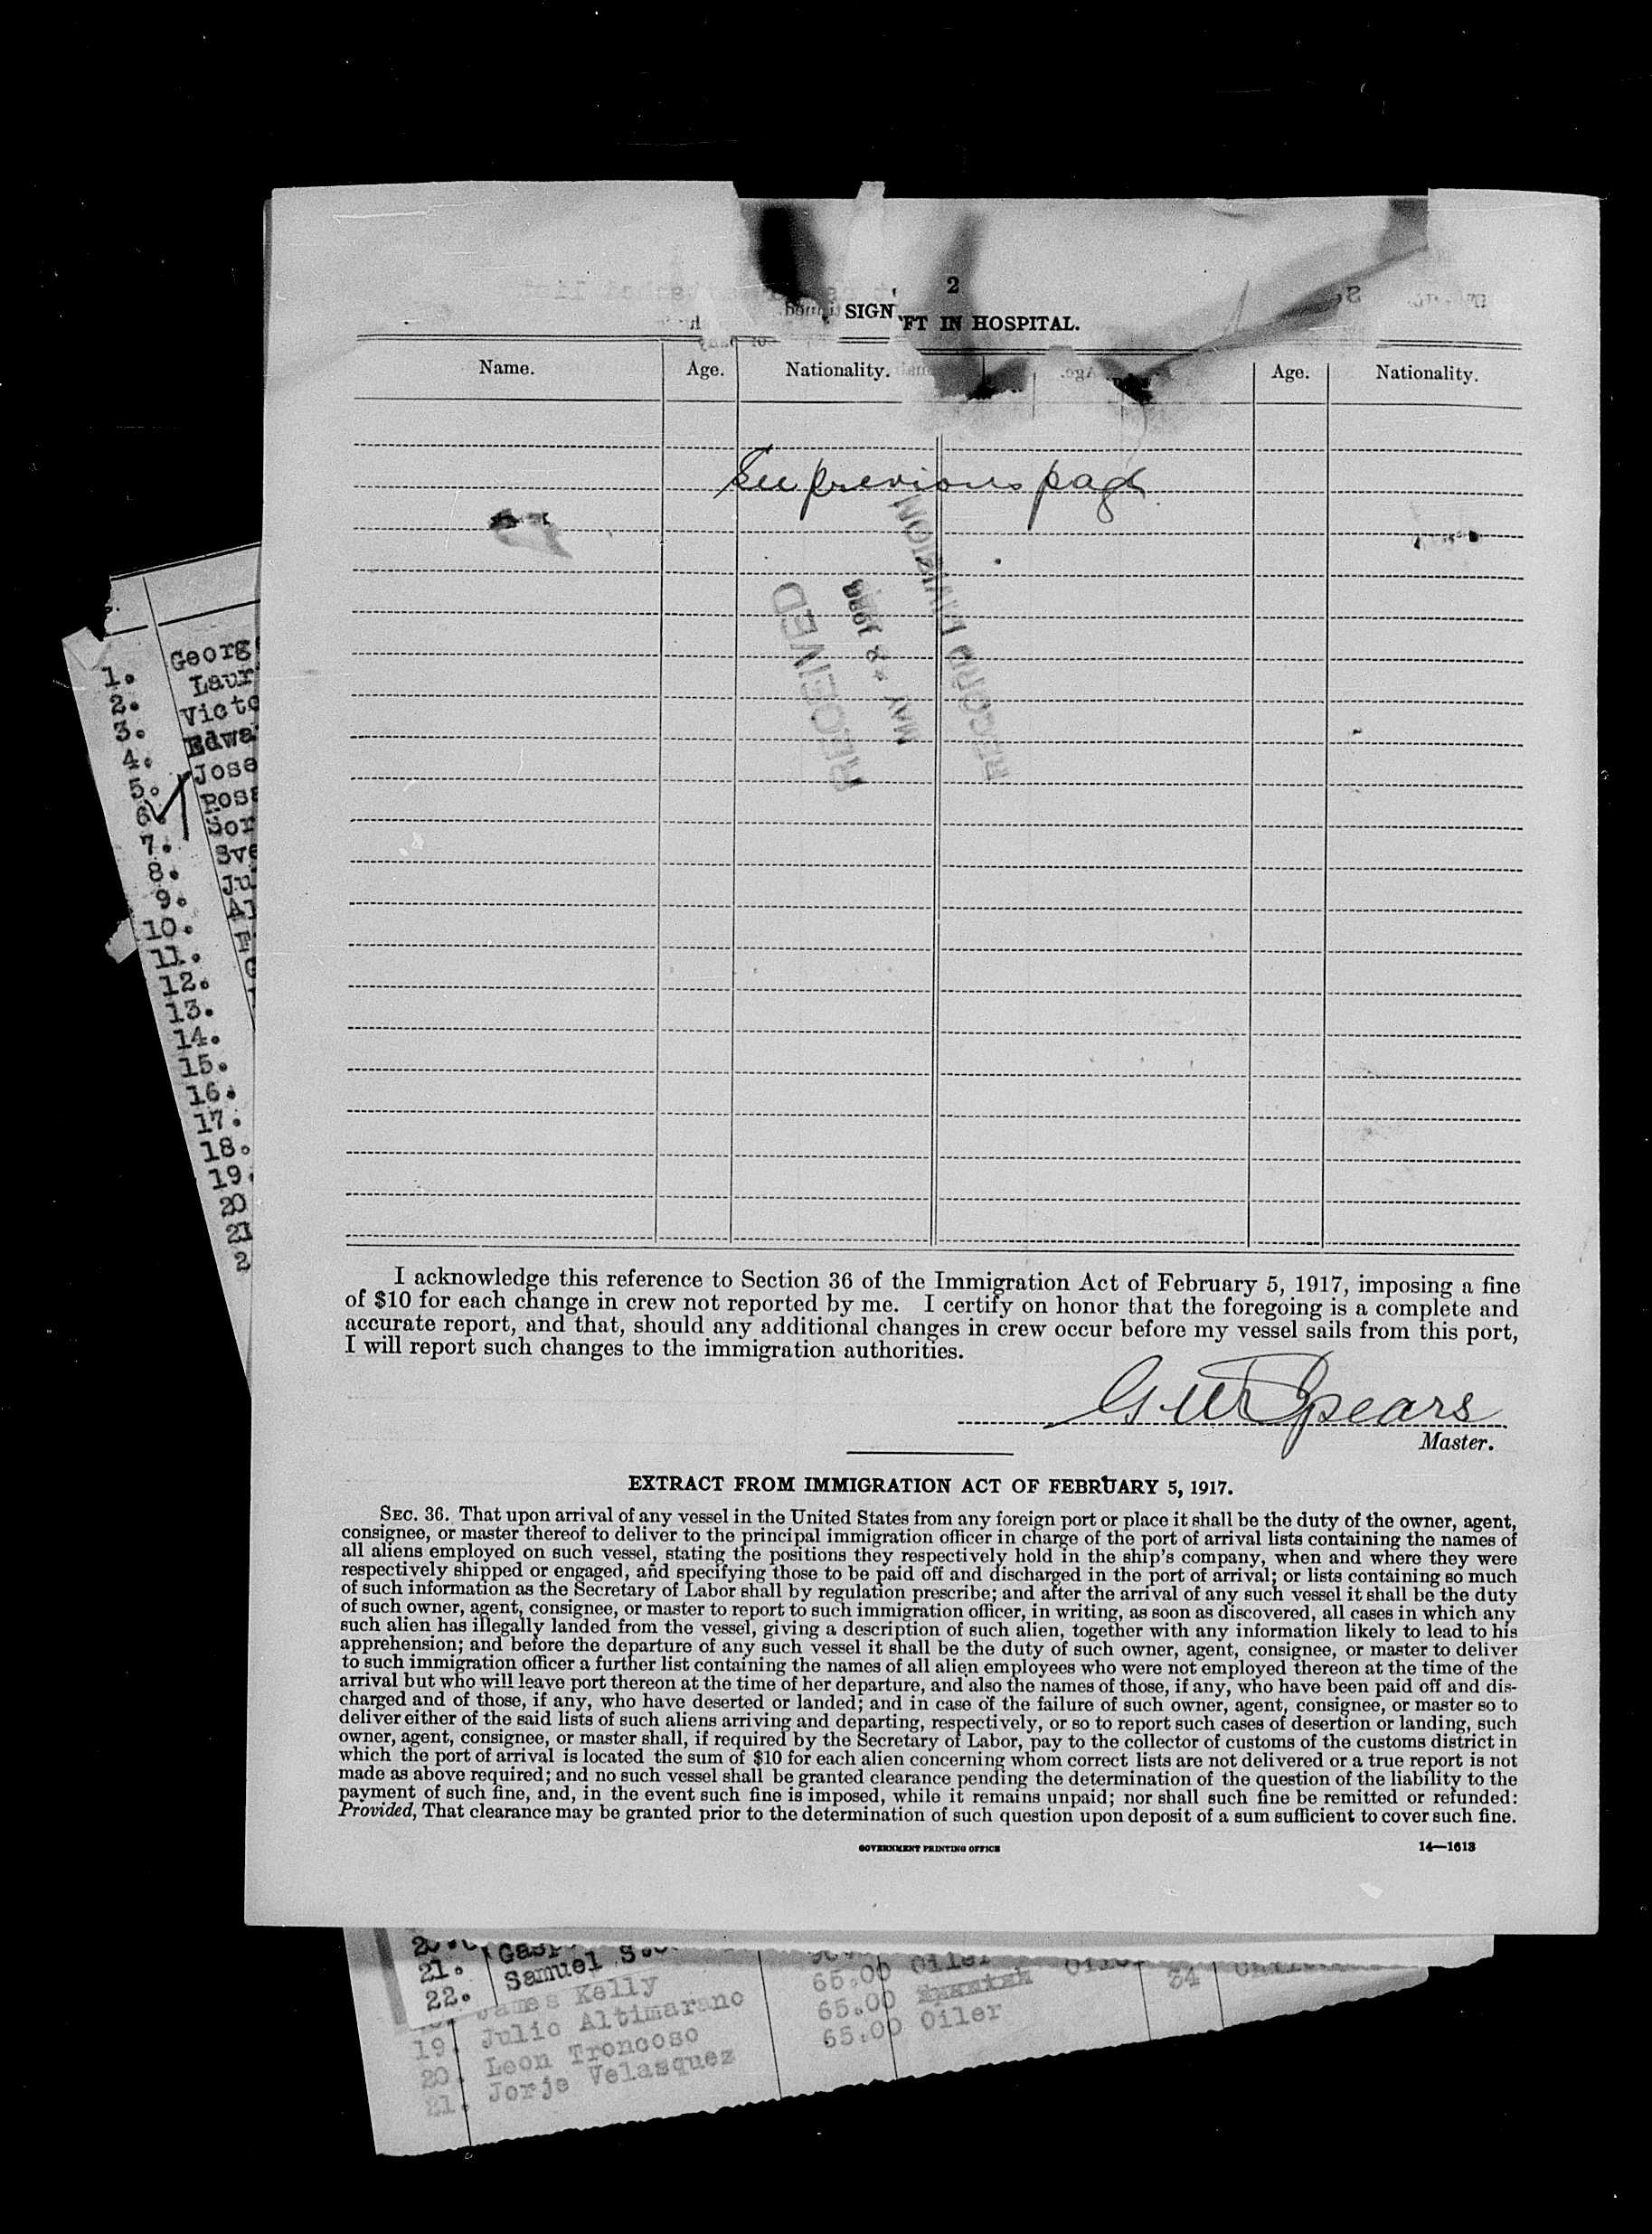 2
SIGN FT IN HOSPITAL.
Name. Age. Nationality. Age. Nationality.
See previous page
RECEIVED
MAY
RECORD DIVISION
1. Georg
2. Laur
3. Victo
4. Edwa
5. Jose
6. Rosa
7. Sor
8. Sve
9. Ju
10. Al
11.
12.
13.
14.
15.
16.
17.
18.
19.
20
21
2
I acknowledge this reference to Section 36 of the Immigration Act of February 5, 1917, imposing a fine
of $10 for each change in crew not reported by me. I certify on honor that the foregoing is a complete and
accurate report, and that, should any additional changes in crew occur before my vessel sails from this port,
I will report such changes to the immigration authorities.
G W Spears
Master.
EXTRACT FROM IMMIGRATION ACT OF FEBRUARY 5, 1917.
SEC. 36. That upon arrival of any vessel in the United States from any foreign port or place it shall be the duty of the owner, agent,
consignee, or master thereof to deliver to the principal immigration officer in charge of the port of arrival lists containing the names of
all aliens employed on such vessel, stating the positions they respectively hold in the ship's company, when and where they were
respectively shipped or engaged, and specifying those to be paid off and discharged in the port of arrival; or lists containing so much
of such information as the Secretary of Labor shall by regulation prescribe; and after the arrival of any such vessel it shall be the duty
of such owner, agent, consignee, or master to report to such immigration officer, in writing, as soon as discovered, all cases in which any
such alien has illegally landed from the vessel, giving a description of such alien, together with any information likely to lead to his
apprehension; and before the departure of any such vessel it shall be the duty of such owner, agent, consignee, or master to deliver
to such immigration officer a further list containing the names of all alien employees who were not employed thereon at the time of the
arrival but who will leave port thereon at the time of her departure, and also the names of those, if any, who have been paid off and dis-
charged and of those, if any, who have deserted or landed; and in case of the failure of such owner, agent, consignee, or master so to
deliver either of the said lists of such aliens arriving and departing, respectively, or so to report such cases of desertion or landing, such
owner, agent, consignee, or master shall, if required by the Secretary of Labor, pay to the collector of customs of the customs district in
which the port of arrival is located the sum of $10 for each alien concerning whom correct lists are not delivered or a true report is not
made as above required; and no such vessel shall be granted clearance pending the determination of the question of the liability to the
payment of such fine, and, in the event such fine is imposed, while it remains unpaid; nor shall such fine be remitted or refunded:
Provided, That clearance may be granted prior to the determination of such question upon deposit of a sum sufficient to cover such fine.
GOVERNMENT PRINTING OFFICE 14—1613
21. Gasp
22. Samuel S.
James Kelly 65.00 Oiler 34
19. Julio Altimarano 65.00
20. Leon Troncoso 65.00 Oiler
21. Jorje Velasquez